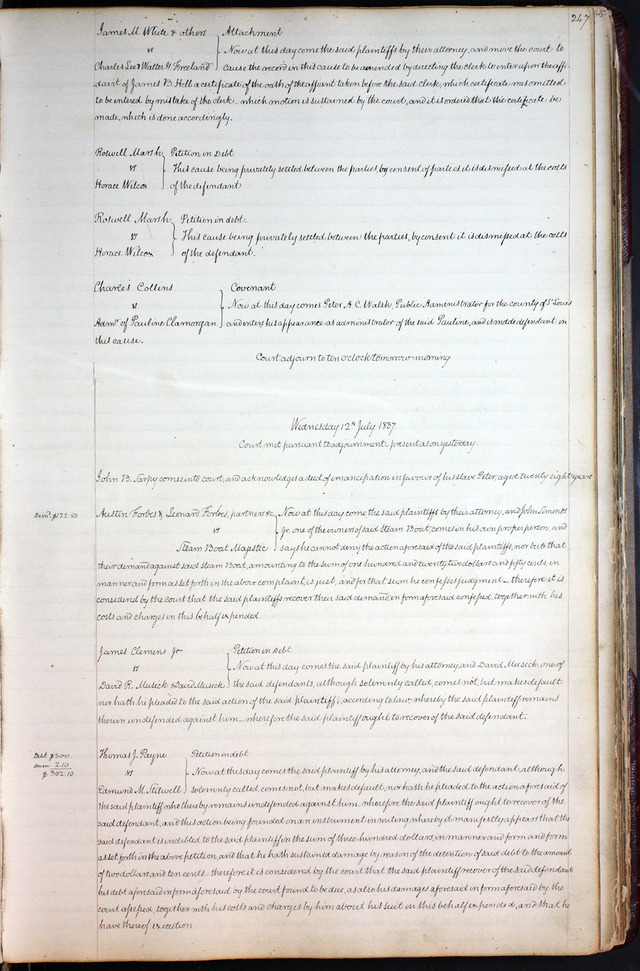 247
James M. White & others } Attachment
vs } Now at this day come the said plaintiffs by their attorney, and move the court to
Charles Lee & Walter H. Freeland } cause the record in this cause to be amended by directing the clerk to enter upon the affi-
davit of James B. Hill a certificate of the oath of the affiant taken before the said clerk, which certificate was omitted
to be entered by mistake of the clerk which motion is sustained by the court, and it is ordered that the certificate be
made, which is done accordingly.
Roswell Marsh } Petition in Debt
vs } This cause being privately settled between the parties, by consent of parties it is dismissed at the costs
Horace Wilcox } of the defendant
Roswell Marsh } Petition in debt.
vs } This cause being privately settled between the parties, by consent it is dismissed at the costs
Horace Wilcox } of the defendant.
Charles Collins } Covenant
vs } Now at this day comes Peter A. C. Walsh, Public Administrator for the county of St Louis
Admr of Pauline Clamorgan } and enters his appearance as administrator of the said Pauline, and is made defendant in
this cause.
Court adjourn to ten o'clock tomorrow morning
Wednesday 12th July 1837.
Court met pursuant to adjournment present as on yesterday.
John B. Sarpy comes into court, and acknowledges a deed of emancipation in favour of his slave Peter, aged twenty eight years
Dem'd $122.50
Austin Forbes & Leonard Forbes, partners &c } Now at this day come the said plaintiffs by their attorney, and John Simonds
vs } Jr. one of the owners of said Steam Boat comes in his own proper person, and
Steam Boat Majestic } says he cannot deny the action aforesaid of the said plaintiffs, nor but that
their demand against said Steam Boat, amounting to the sum of one hundred and twenty two dollars and fifty cents in
manner and form as set forth in the above complaint, is just, and for that sum he confesses judgment therefore it is
considered by the court that the said plaintiffs recover their said demand, in form aforesaid confessed, together with his
costs and charges in this behalf expended.
James Clemens Jr } Petition in Debt
vs } Now at this day comes the said plaintiff by his attorney, and David Musick, one of
David R. Musick & David Musick } the said defendants, although solemnly called, comes not, but makes default
nor hath he pleaded to the said action of the said plaintiff, according to law whereby the said plaintiff remains
therein undefended against him wherefore the said plaintiff ought to recover of the said defendant.
Debt $300.
Dam 2.10
$302.10
Thomas J. Payne } Petition in debt
vs } Now at this day comes the said plaintiff by his attorney, and the said defendant, although
Edmund M. Stilwell } solemnly called, comes not, but makes default, nor hath he pleaded to the action aforesaid of
the said plaintiff who thereby remains undefended against him wherefore the said plaintiff ought to recover of the
said defendant, and this action being founded on an instrument in writing whereby it manifestly appears that the
said defendant is indebted to the said plaintiff in the sum of three hundred dollars, in manner and form and form
as set forth in the above petition, and that he hath sustained damage by reason of the detention of said debt to the amount
of two dollars and ten cents therefore it is considered by the court that the said plaintiff recover of the said defendant
his debt aforesaid in form aforesaid by the court found to be due, as also his damages aforesaid in form aforesaid by the
court assessed, together with his costs and charges by him about his suit in this behalf expended, and that he
have thereof execution